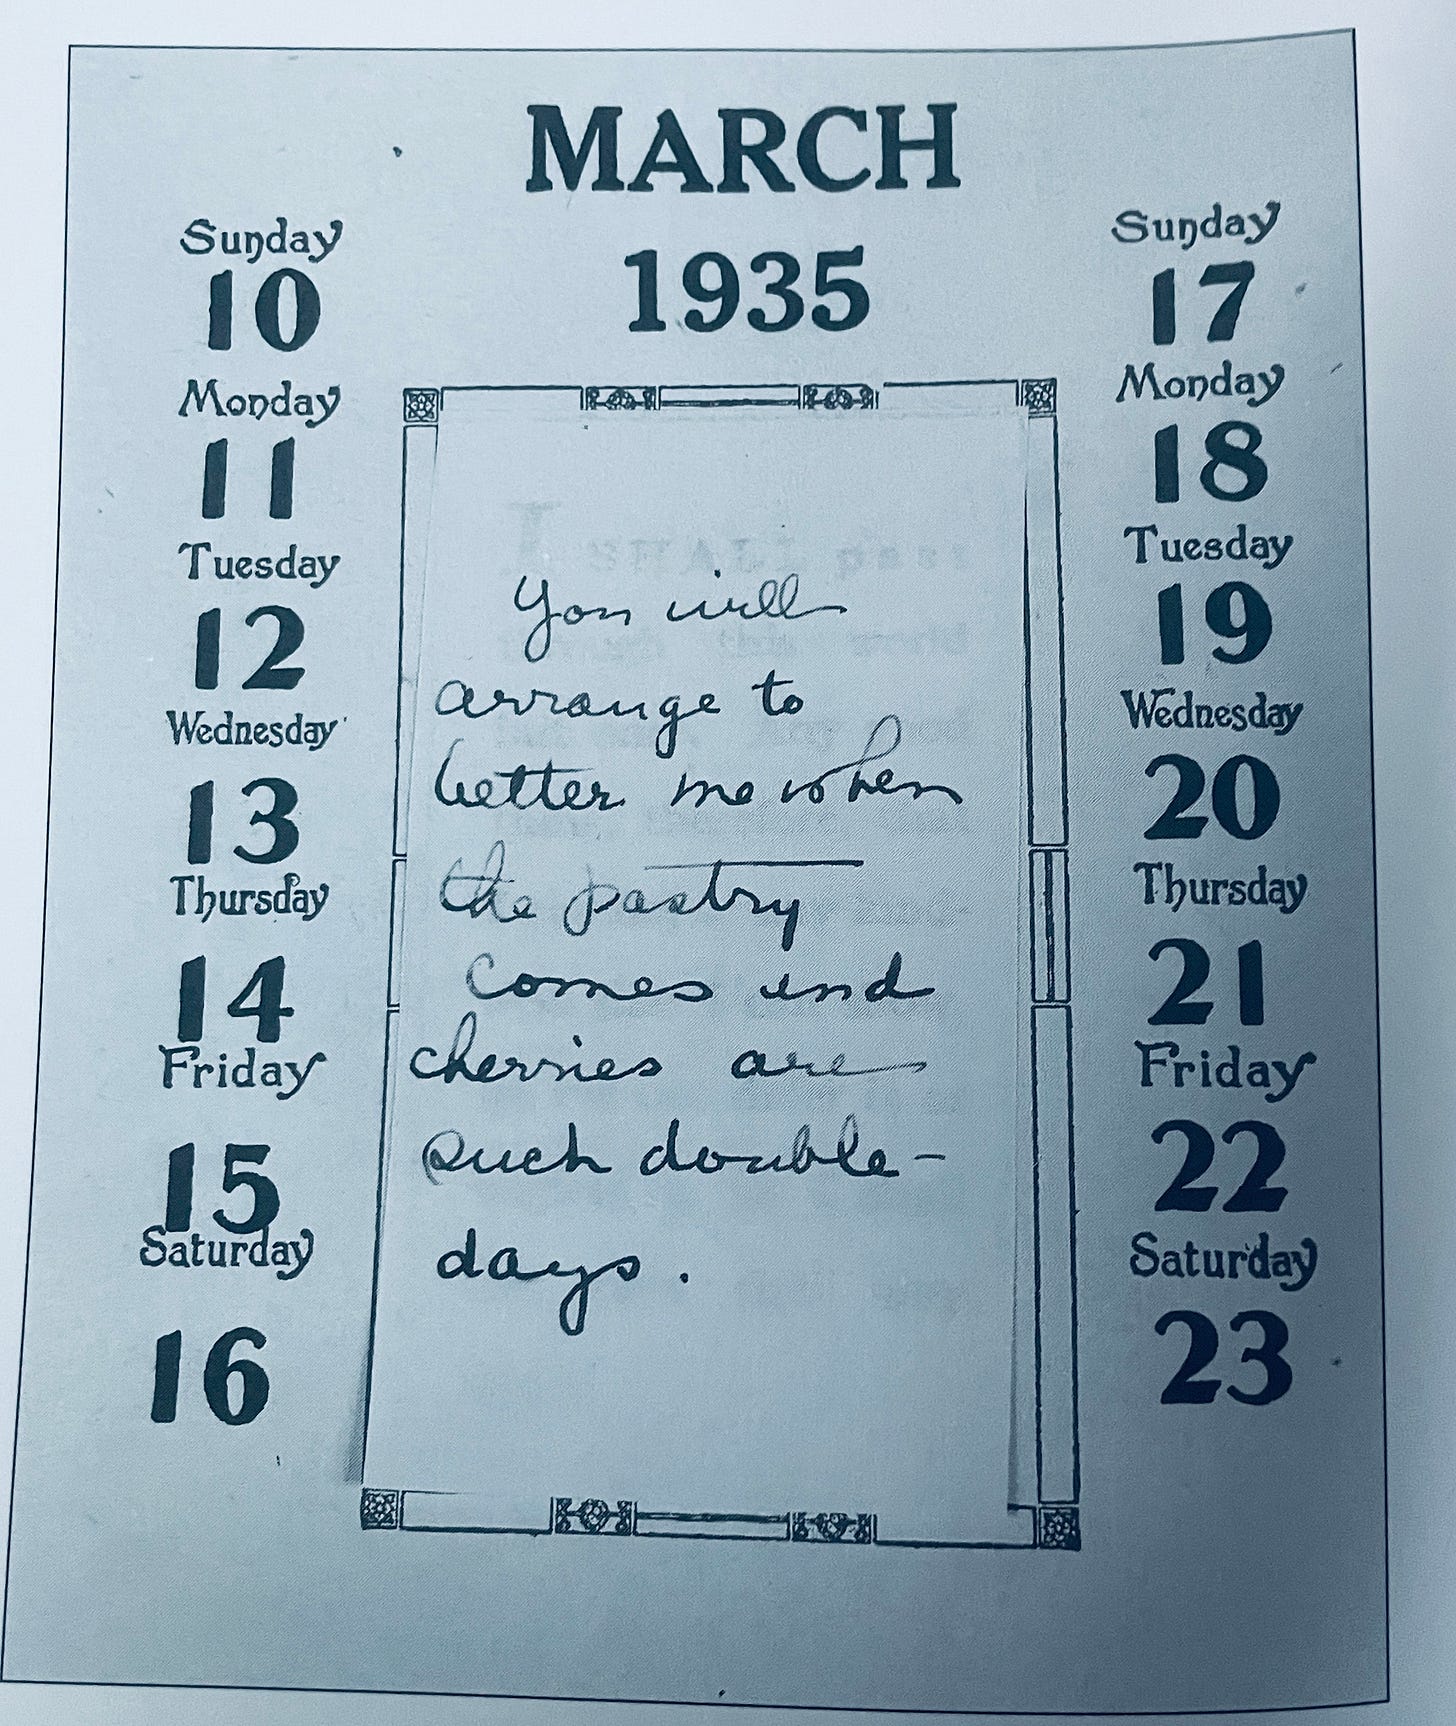 MARCH
1935
Sunday
10
Monday
11
Tuesday
12
Wednesday
13
Thursday
14
Friday
15
Saturday
16
You will
arrange to
better me when
the pastry
comes and
cherries are
such double-
days.
Sunday
17
Monday
18
Tuesday
19
Wednesday
20
Thursday
21
Friday
22
Saturday
23